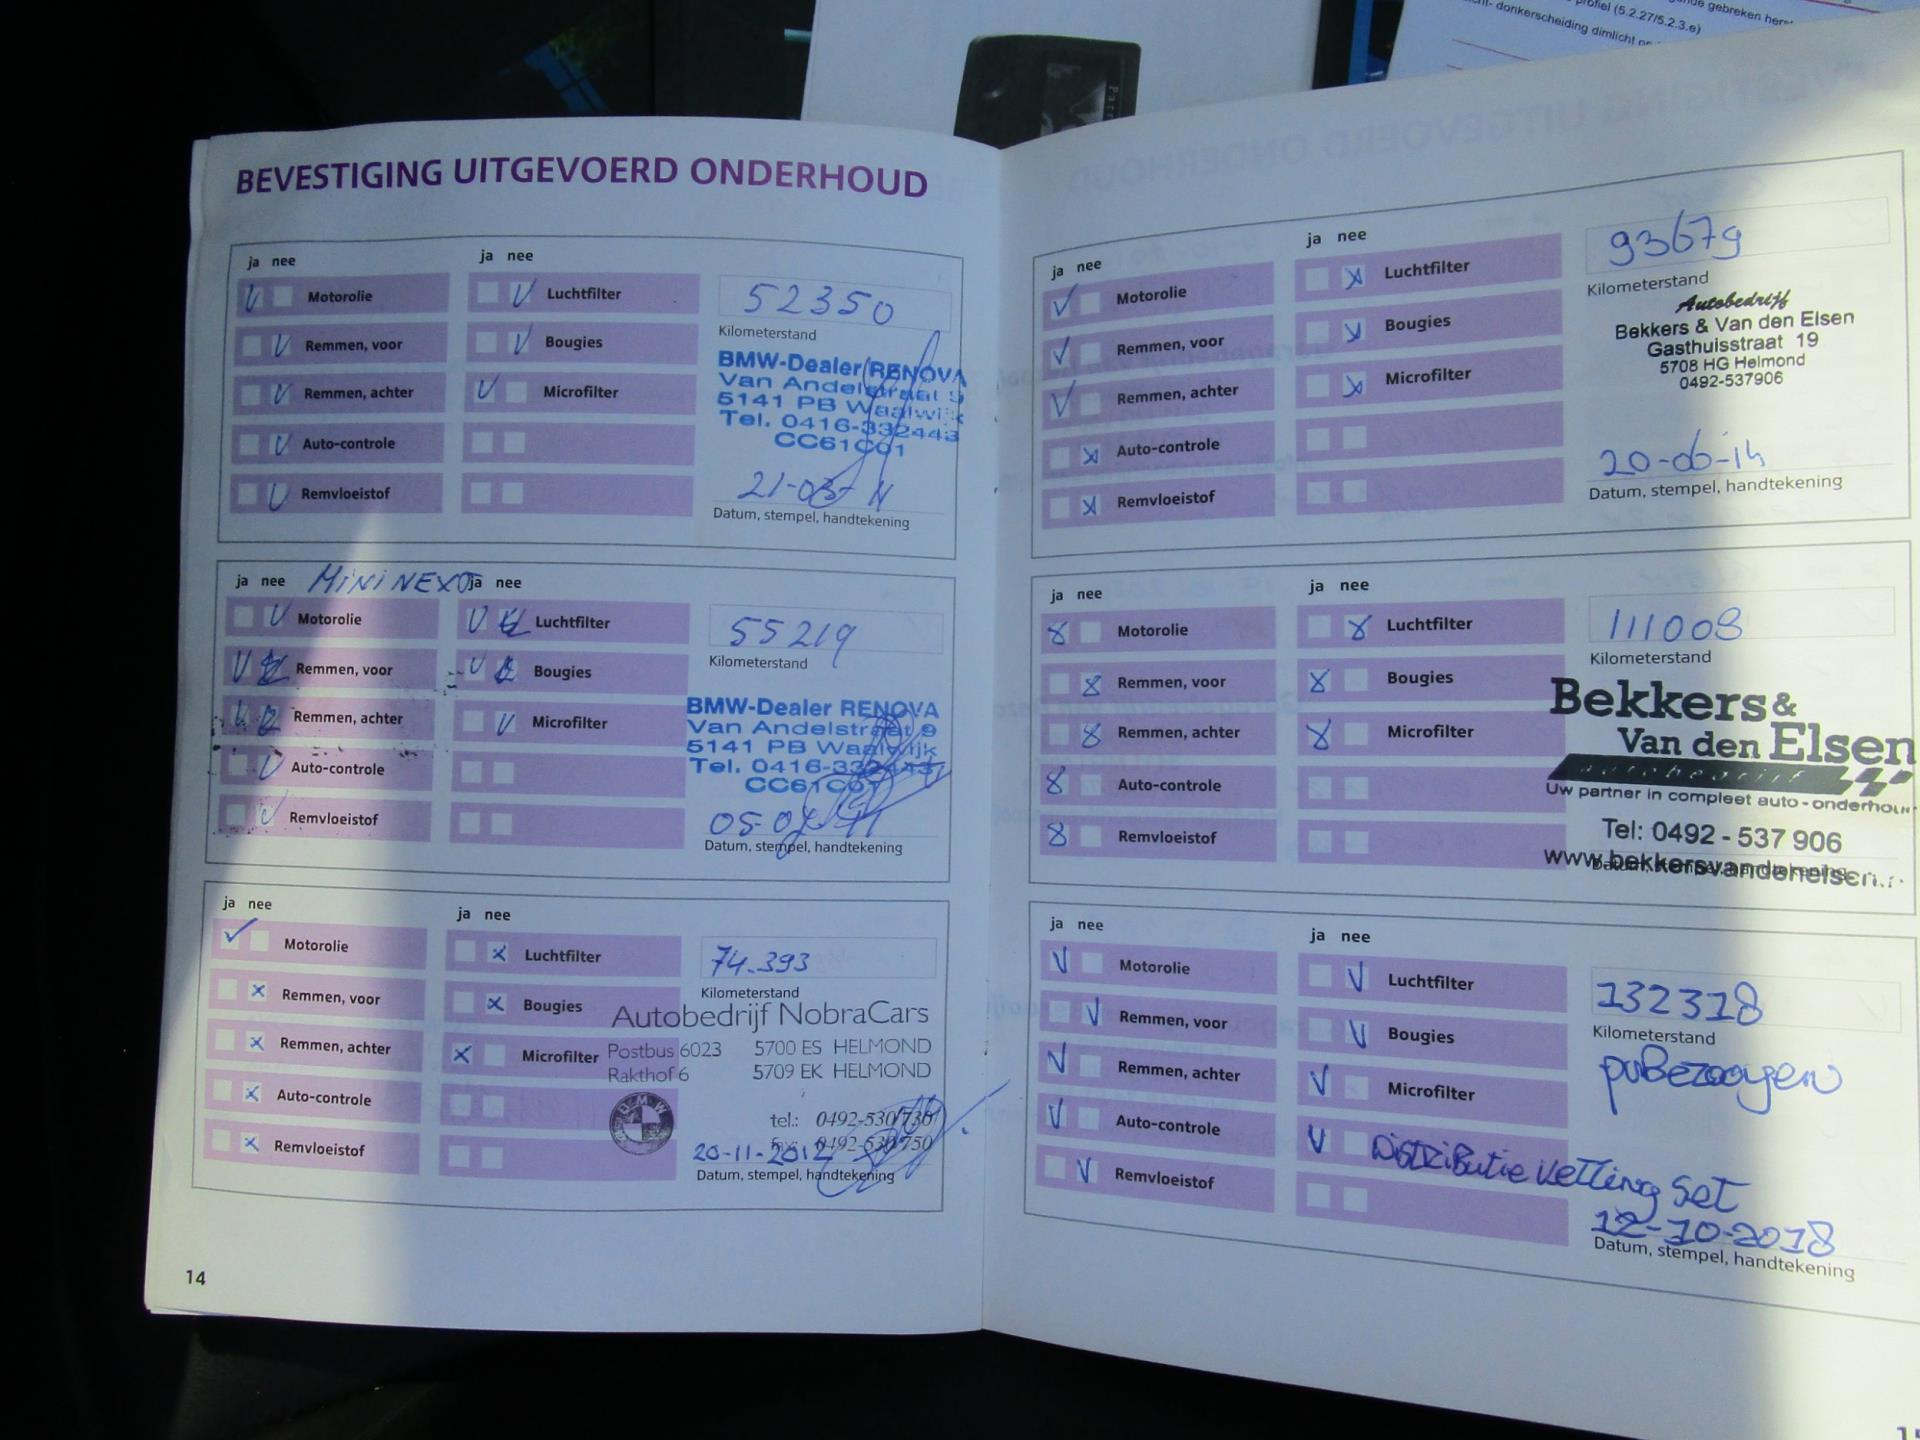 profiel (5.2.27/5.2.3.e)
donkerscheiding dimlicht
BEVESTIGING UITGEVOERD ONDERHOUD
ja nee
ja nee
Motorolie
Luchtfilter
52350
Remmen, voor
Bougies
Kilometerstand
Remmen, achter
Microfilter
BMW-Dealer RENOVA
Van Andelstraat 9
5141 PB Waalwijk
Tel. 0416-332443
CC61C01
Auto-controle
Remvloeistof
21-03-11
Datum, stempel, handtekening
ja nee
MINI NEXT
ja nee
Motorolie
Luchtfilter
55219
Remmen, voor
Bougies
Kilometerstand
Remmen, achter
Microfilter
BMW-Dealer RENOVA
Van Andelstraat 9
5141 PB Waalwijk
Tel. 0416-332443
CC61C01
Auto-controle
Remvloeistof
Datum, stempel, handtekening
ja nee
ja nee
Motorolie
Luchtfilter
74.393
Remmen, voor
Bougies
Kilometerstand
Remmen, achter
Microfilter
Autobedrijf NobraCars
Postbus 6023 5700 ES HELMOND
Rakthof 6 5709 EK HELMOND
BMW
tel.: 0492-530730
fax: 0492-530750
Auto-controle
Remvloeistof
20-11-2012
Datum, stempel, handtekening
14
ja nee
ja nee
Motorolie
Luchtfilter
93679
Remmen, voor
Bougies
Kilometerstand
Remmen, achter
Microfilter
Autobedrijf
Bekkers & Van den Elsen
Gasthuisstraat 19
5708 HG Helmond
0492-537906
Auto-controle
Remvloeistof
20-06-14
Datum, stempel, handtekening
ja nee
ja nee
Motorolie
Luchtfilter
111008
Remmen, voor
Bougies
Kilometerstand
Remmen, achter
Microfilter
Bekkers &
Van den Elsen
autobedrijf
Uw partner in compleet auto-onderhoud
Tel: 0492 - 537 906
www.bekkersvandenelsen.nl
Auto-controle
Remvloeistof
Datum, stempel, handtekening
ja nee
ja nee
Motorolie
Luchtfilter
132318
Remmen, voor
Bougies
Kilometerstand
Remmen, achter
Microfilter
Auto-controle
Distributie ketting set
Remvloeistof
12-10-2018
Datum, stempel, handtekening